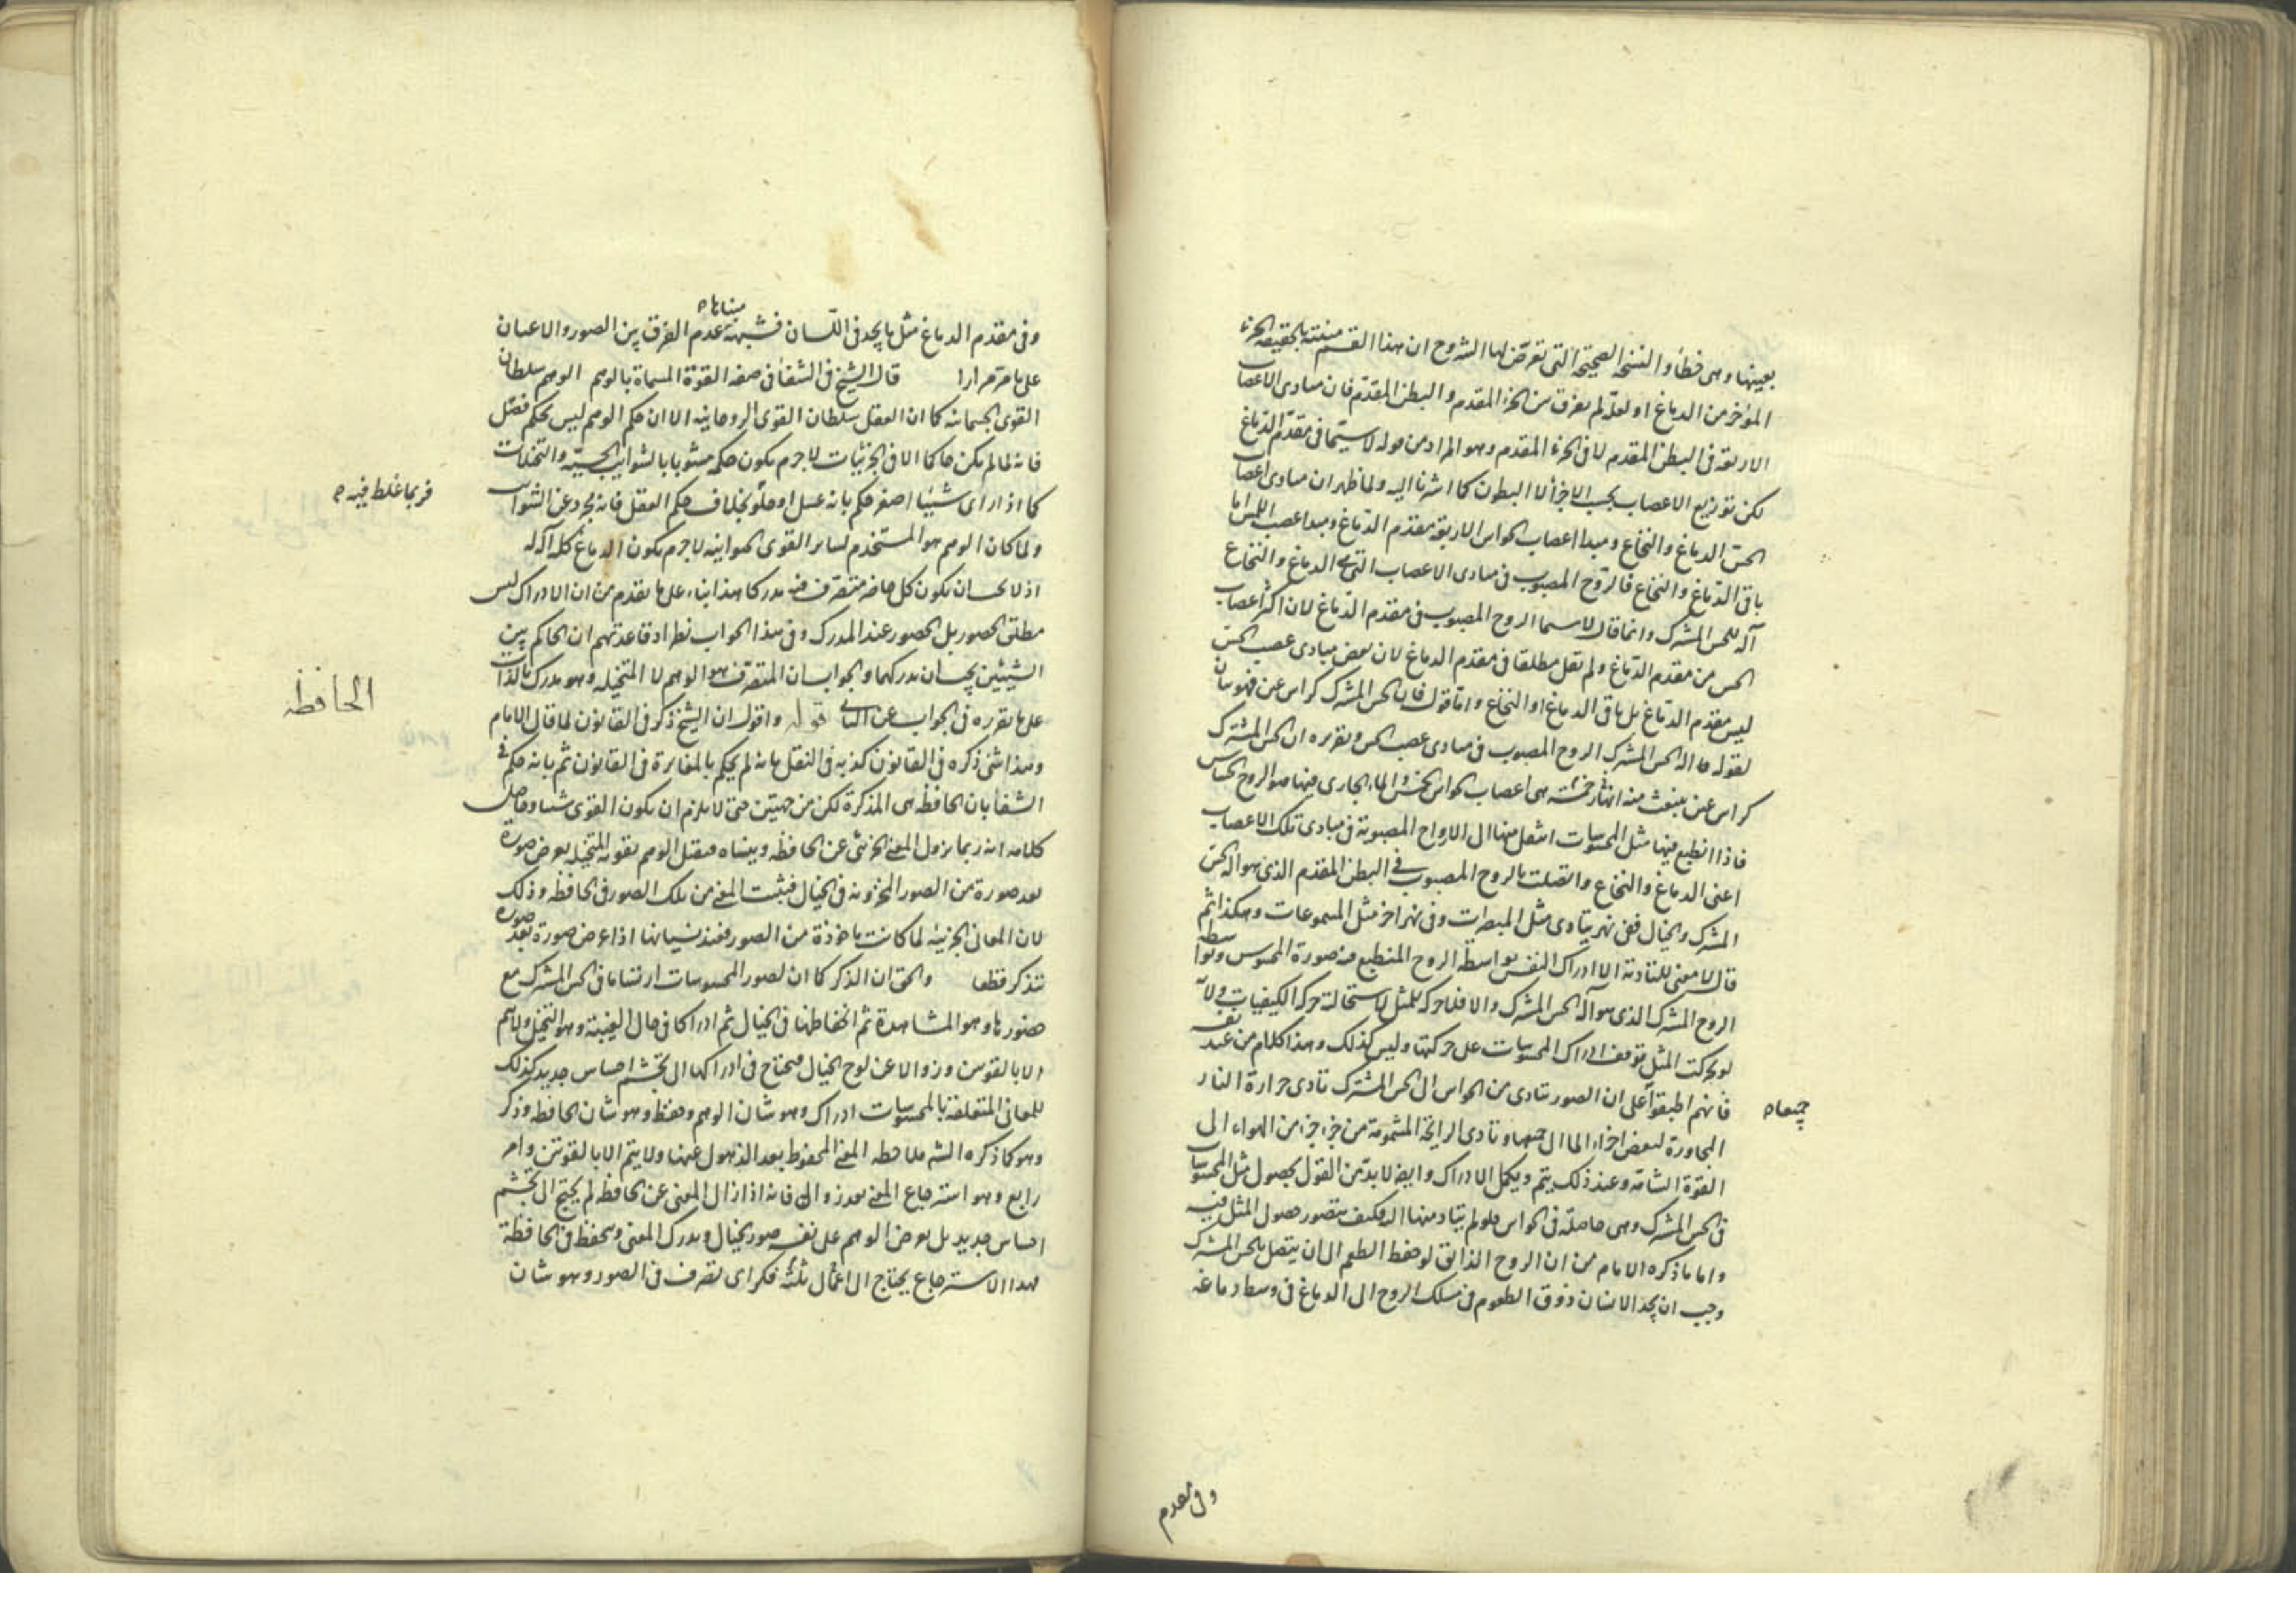 بعينها وهى خطأ والنسخ الصحيحة التى تعرض لها الشروح ان هذا القسم منبته بالحقيقة الجزء
المؤخر من الدماغ او لعله لم يفرق بين الجزء المقدم والبطن المقدم فان مبادى الاعصاب
الاربعة فى البطن المقدم لا فى الجزء المقدم وهو المراد من قوله لا سيما فى مقدم الدماغ
لكن توزيع الاعصاب بحسب الاجزاء لا البطون كما اشرنا اليه ولما ظهر ان مبادى اعصاب
الحس الدماغ والنخاع ومبدا اعصاب الحواس الاربعة مقدم الدماغ ومبدا عصب اللمس اما
باقى الدماغ والنخاع فالروح المصبوب فى مبادى الاعصاب التى هى الدماغ والنخاع
آلة للحس المشترك وانما قال لا سيما الروح المصبوب فى مقدم الدماغ لان اكثر اعصاب
الحس من مقدم الدماغ ولم يقل مطلقا فى مقدم الدماغ لان بعض مبادى عصب الحس
ليس مقدم الدماغ بل باقى الدماغ او النخاع واما قوله فان الحس المشترك كراس عين فهو بيان
لقوله ما آلة الحس المشترك الروح المصبوب فى مبادى عصب الحس وتقريره ان الحس المشترك
كراس عين ينبعث منه انهار خمسة هى اعصاب الحواس الخمس والماء الجارى فيها هو الروح الحساس
فاذا انطبع فيها مثل المحسوسات انتقل منها الى الارواح المصبوبة فى مبادى تلك الاعصاب
اعنى الدماغ والنخاع واتصلت بالروح المصبوب فى البطن المقدم الذى هو آلة الحس
المشترك والخيال ففى نهر يتادى مثل المبصرات وفى نهر اخر مثل المسموعات وهكذا ثم
قال لا معنى للتادية الا ادراك النفس بواسطة الروح المنطبع فيه صورة المحسوس وبواسطة
الروح المشترك الذى هو آلة الحس المشترك والا فلا حركة للمثل لاستحالة حركة الكيفيات ولانه
لو تحركت المثل توقف ادراك المحسوسات على حركتها وليس كذلك وهذا كلام من عند نفسه
فانهم اطبقوا على ان الصور تتادى من الحواس الى الحس المشترك تادى حرارة النار
جميعا
المجاورة لبعض اجزاء الماء الى جميعها وتادى الرايحة المشمومة من جزء جزء من الهواء الى
القوة الشامة وعند ذلك يتم ويكمل الادراك وايضا لا بد من القول بحصول مثل المحسوسات
فى الحس المشترك وهى حاصلة فى الحواس فلو لم يتاد منها اليه فكيف يتصور حصول المثل فيه
واما ما ذكره الامام من ان الروح الذائق لو حفظ الطعم الى ان يتصل بالحس المشترك
وجب ان يجد الانسان ذوق الطعوم فى مسلك الروح الى الدماغ فى وسط دماغه
وفى مقدم
وفى مقدم الدماغ مثل ما يجد فى اللسان فشبهة مبناها عدم الفرق بين الصور والاعيان
على ما مر مرارا قال الشيخ فى الشفا فى صفة القوة المسماة بالوهم الوهم سلطان
القوى الجسمانية كما ان العقل سلطان القوى الروحانية الا ان حكم الوهم ليس كحكم فصل
فانه لما لم يكن حاكما الا فى الجزئيات لا جرم يكون حكمه مشوبا بالشوايب الحسية والتخيلات
فربما غلط فيه
كما اذا راى شيئا اصفر حكم بانه عسل او حلو بخلاف حكم العقل فانه مجرد عن الشوايب
ولما كان الوهم هو المستخدم لساير القوى الحيوانية لا جرم يكون الدماغ كله آلة له
اذ لا يجب ان يكون كل ما فيه متصرف فيه مدركا هذا بناء على ما تقدم من ان الادراك ليس
مطلق الحضور بل الحضور عند المدرك وفى هذا الجواب نظر اذ قاعدتهم ان الحاكم بين
الشيئين يجب ان يدركهما والجواب ان المتصرف هو الوهم لا المتخيلة وهو مدرك بالذات
الحافظه
على ما تقرره فى الجواب عن الثانى قوله واقول ان الشيخ ذكر فى القانون لما قال الامام
وهذا شئ ذكره فى القانون كذبه فى النقل بانه لم يحكم بالمغايرة فى القانون ثم بانه حكم فى
الشفا بان الحافظة هى المذكرة لكن من جهتين حتى لا يلزم ان يكون القوى ستا وحاصل
كلامه انه ربما يزول المعنى الجزئى عن الحافظة وينساه فيقبل الوهم بقوته المتخيلة يعرض صورة
بعد صورة من الصور المخزونة فى الخيال فيثبت المعنى من تلك الصور فى الحافظة وذلك
لان المعانى الجزئية لما كانت ماخوذة من الصور فعند نسيانها اذا عرض صورة بعد صورة
تتذكر قطعا والحق ان الذكر كما ان لصور المحسوسات ارتساما فى الحس المشترك مع
حضورها وهو المشاهدة ثم انحفاظها فى الخيال ثم ادراكا فى حال الغيبة وهو التخيل ولا يتم
الا بالقوتين وزوالا عن لوح الخيال فيحتاج فى ادراكها الى تجشم احساس جديد كذلك
للمعانى المتعلقة بالمحسوسات ادراك وهو شان الوهم وحفظ وهو شان الحافظة وذكر
وهو كما ذكره الشه ملاحظة المعنى المحفوظ بعد الذهول عنها ولا يتم الا بالقوتين وامر
رابع وهو استرجاع المعنى بعد زواله فانه اذا زال المعنى عن الحافظة لم يحتج الى تجشم
احساس جديد بل يعرض الوهم على نفسه صور الخيال ويدرك المعنى ويحفظ فى الحافظة
فهذا الاسترجاع يحتاج الى اعمال ثلثة فكر اى تصرف فى الصور وهو شان